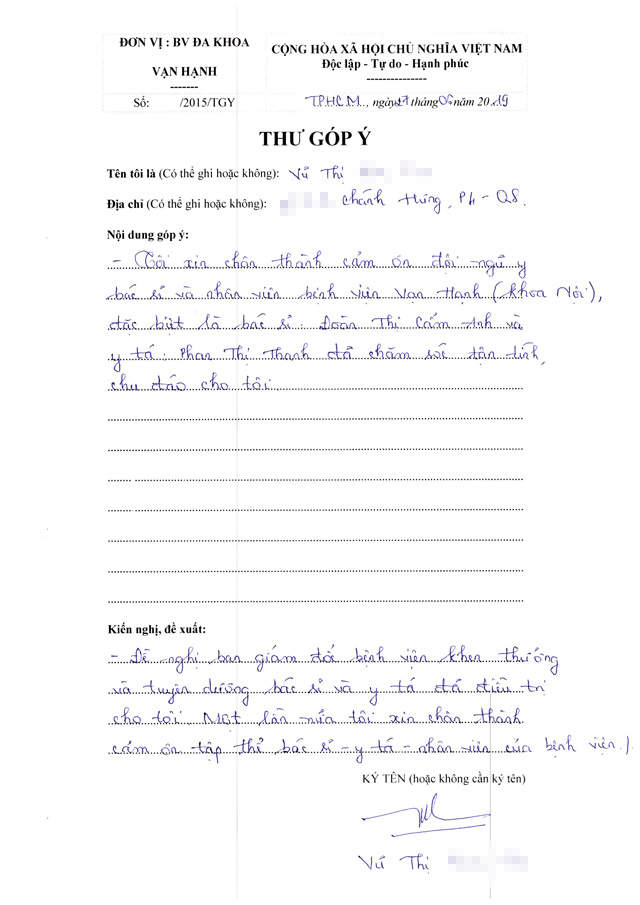 ĐƠN VỊ : BV ĐA KHOA
VẠN HẠNH
-------
Số: /2015/TGY
CỘNG HÒA XÃ HỘI CHỦ NGHĨA VIỆT NAM
Độc lập - Tự do - Hạnh phúc
---------------
TP.HCM, ngày 27 tháng 06 năm 2019
THƯ GÓP Ý
Tên tôi là (Có thể ghi hoặc không): Vũ Thị
Địa chỉ (Có thể ghi hoặc không): Chánh Hưng, P4 - Q8.
Nội dung góp ý:
- Tôi xin chân thành cám ơn đội ngũ y
bác sĩ và nhân viên bệnh viện Vạn Hạnh (khoa Nội),
đặc biệt là bác sĩ : Đoàn Thị Cẩm Anh và
y tá : Phan Thị Thanh đã chăm sóc tận tình,
chu đáo cho tôi
Kiến nghị, đề xuất:
- Đề nghị ban giám đốc bệnh viện khen thưởng
và tuyên dương bác sĩ và y tá đã điều trị
cho tôi. Một lần nữa tôi xin chân thành
cám ơn tập thể bác sĩ - y tá - nhân viên của bệnh viện./.
KÝ TÊN (hoặc không cần ký tên)
Vũ Thị